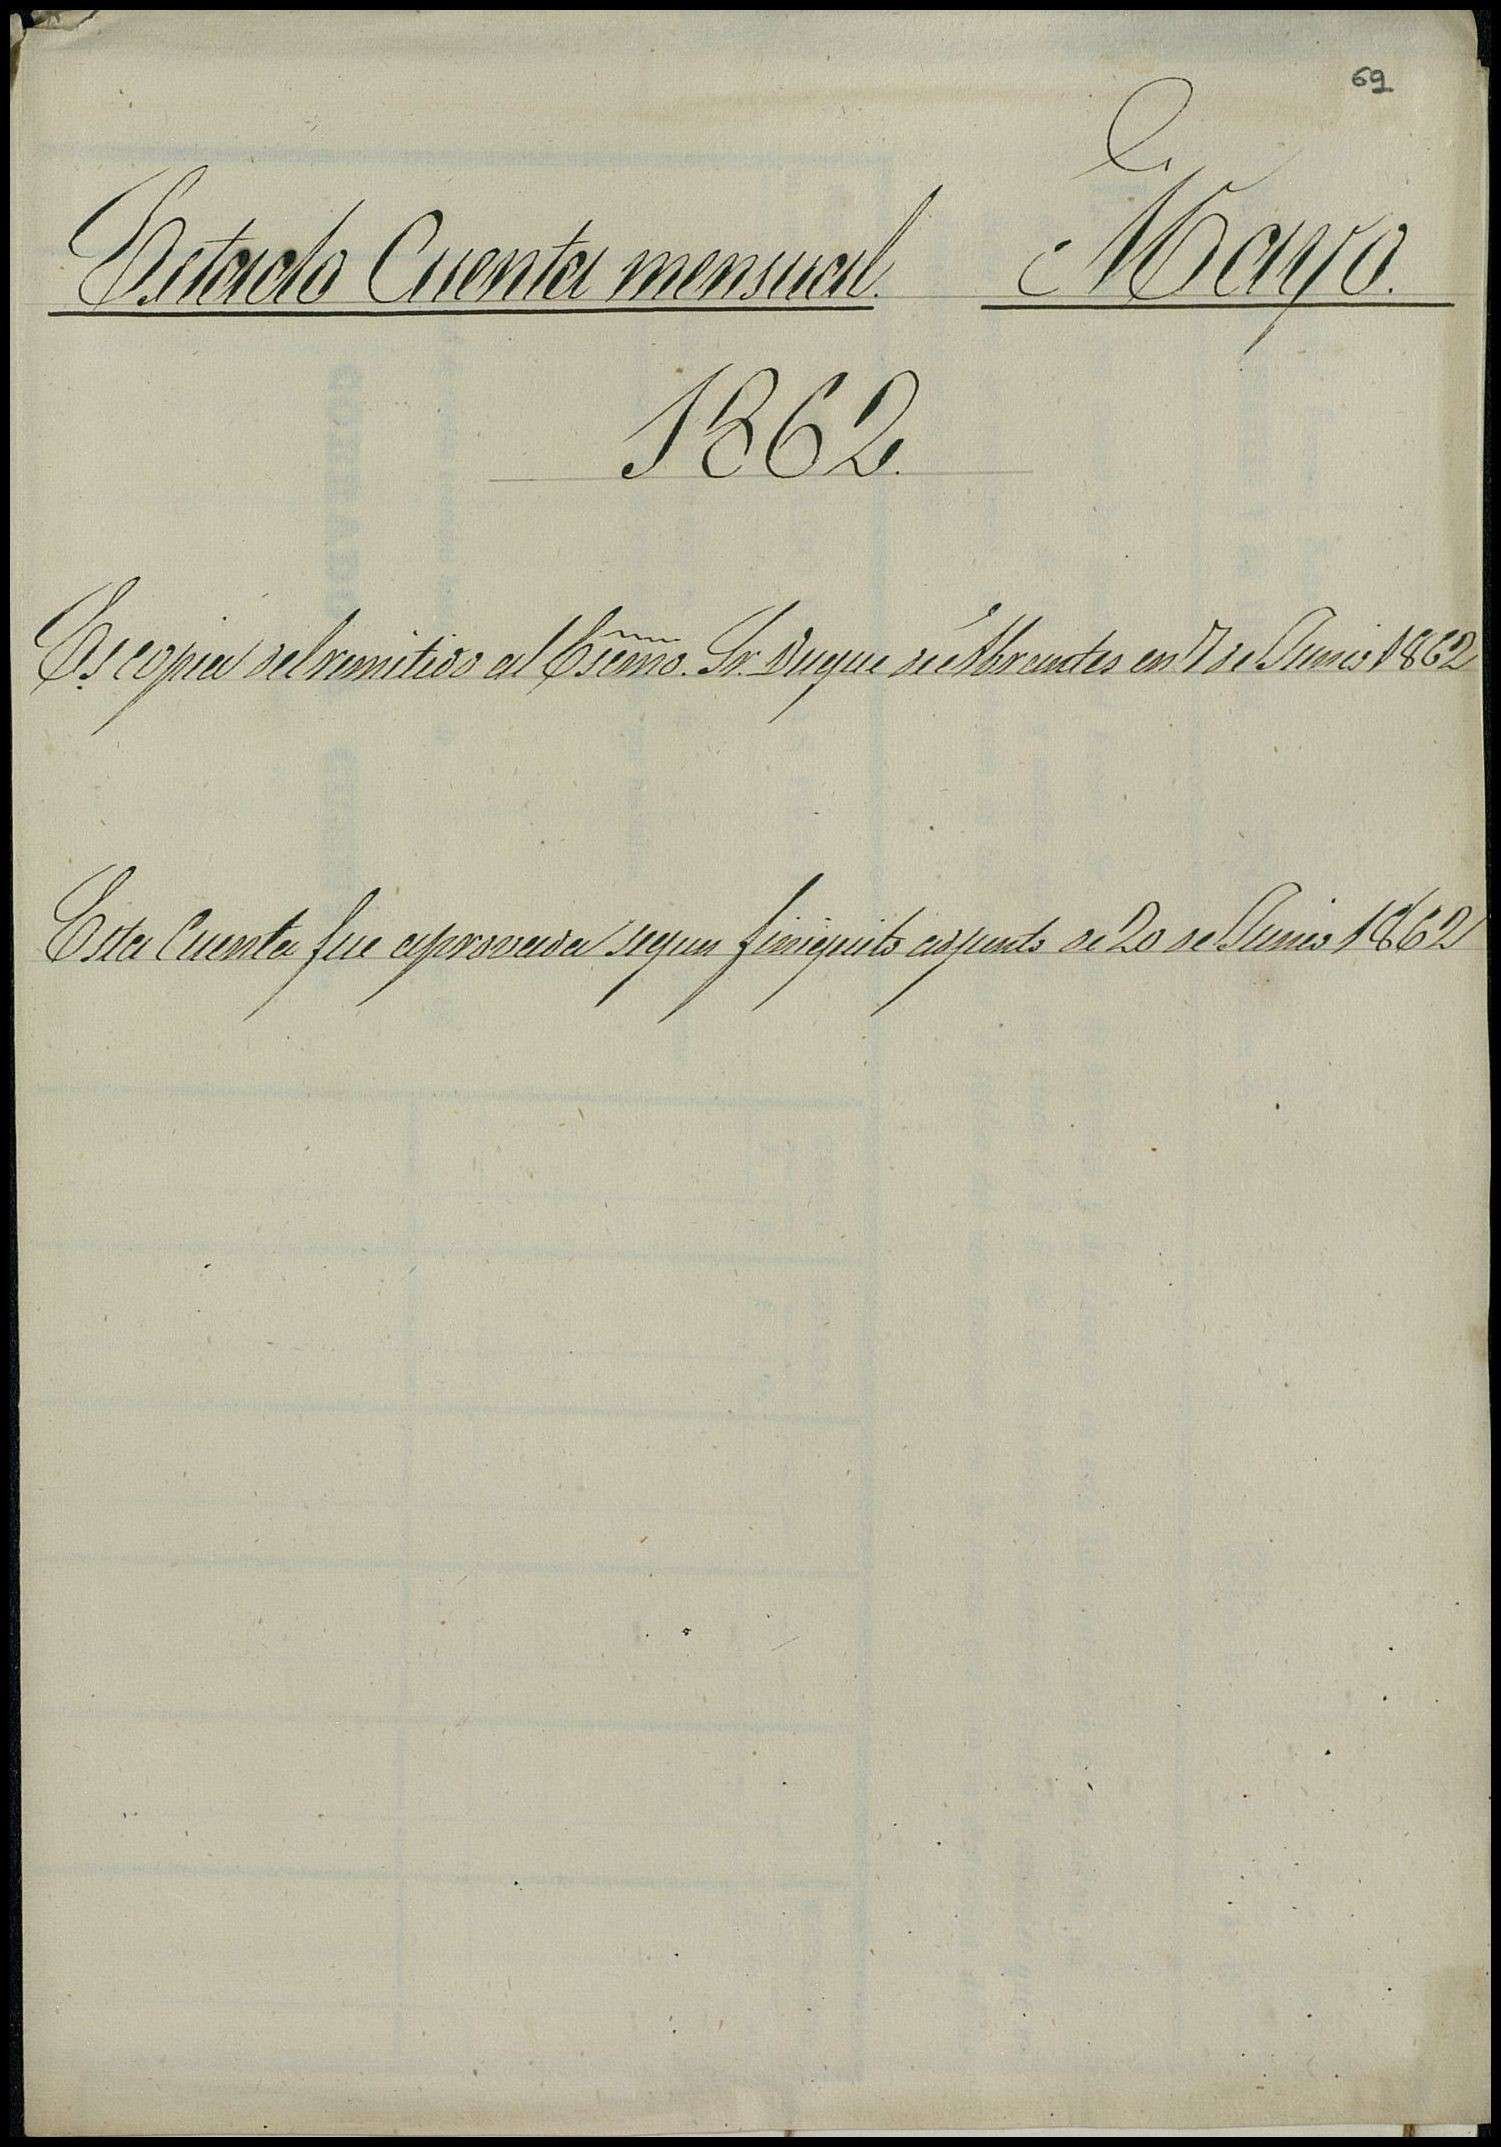 69
Estado Cuenta mensual. Mayo.
1862.
Es copia del remitido al Escmo. Sr. Duque de Abrantes en 7 de Junio 1862
Esta Cuenta fue aprovada segun finiquito adjunto de 20 de Junio 1862